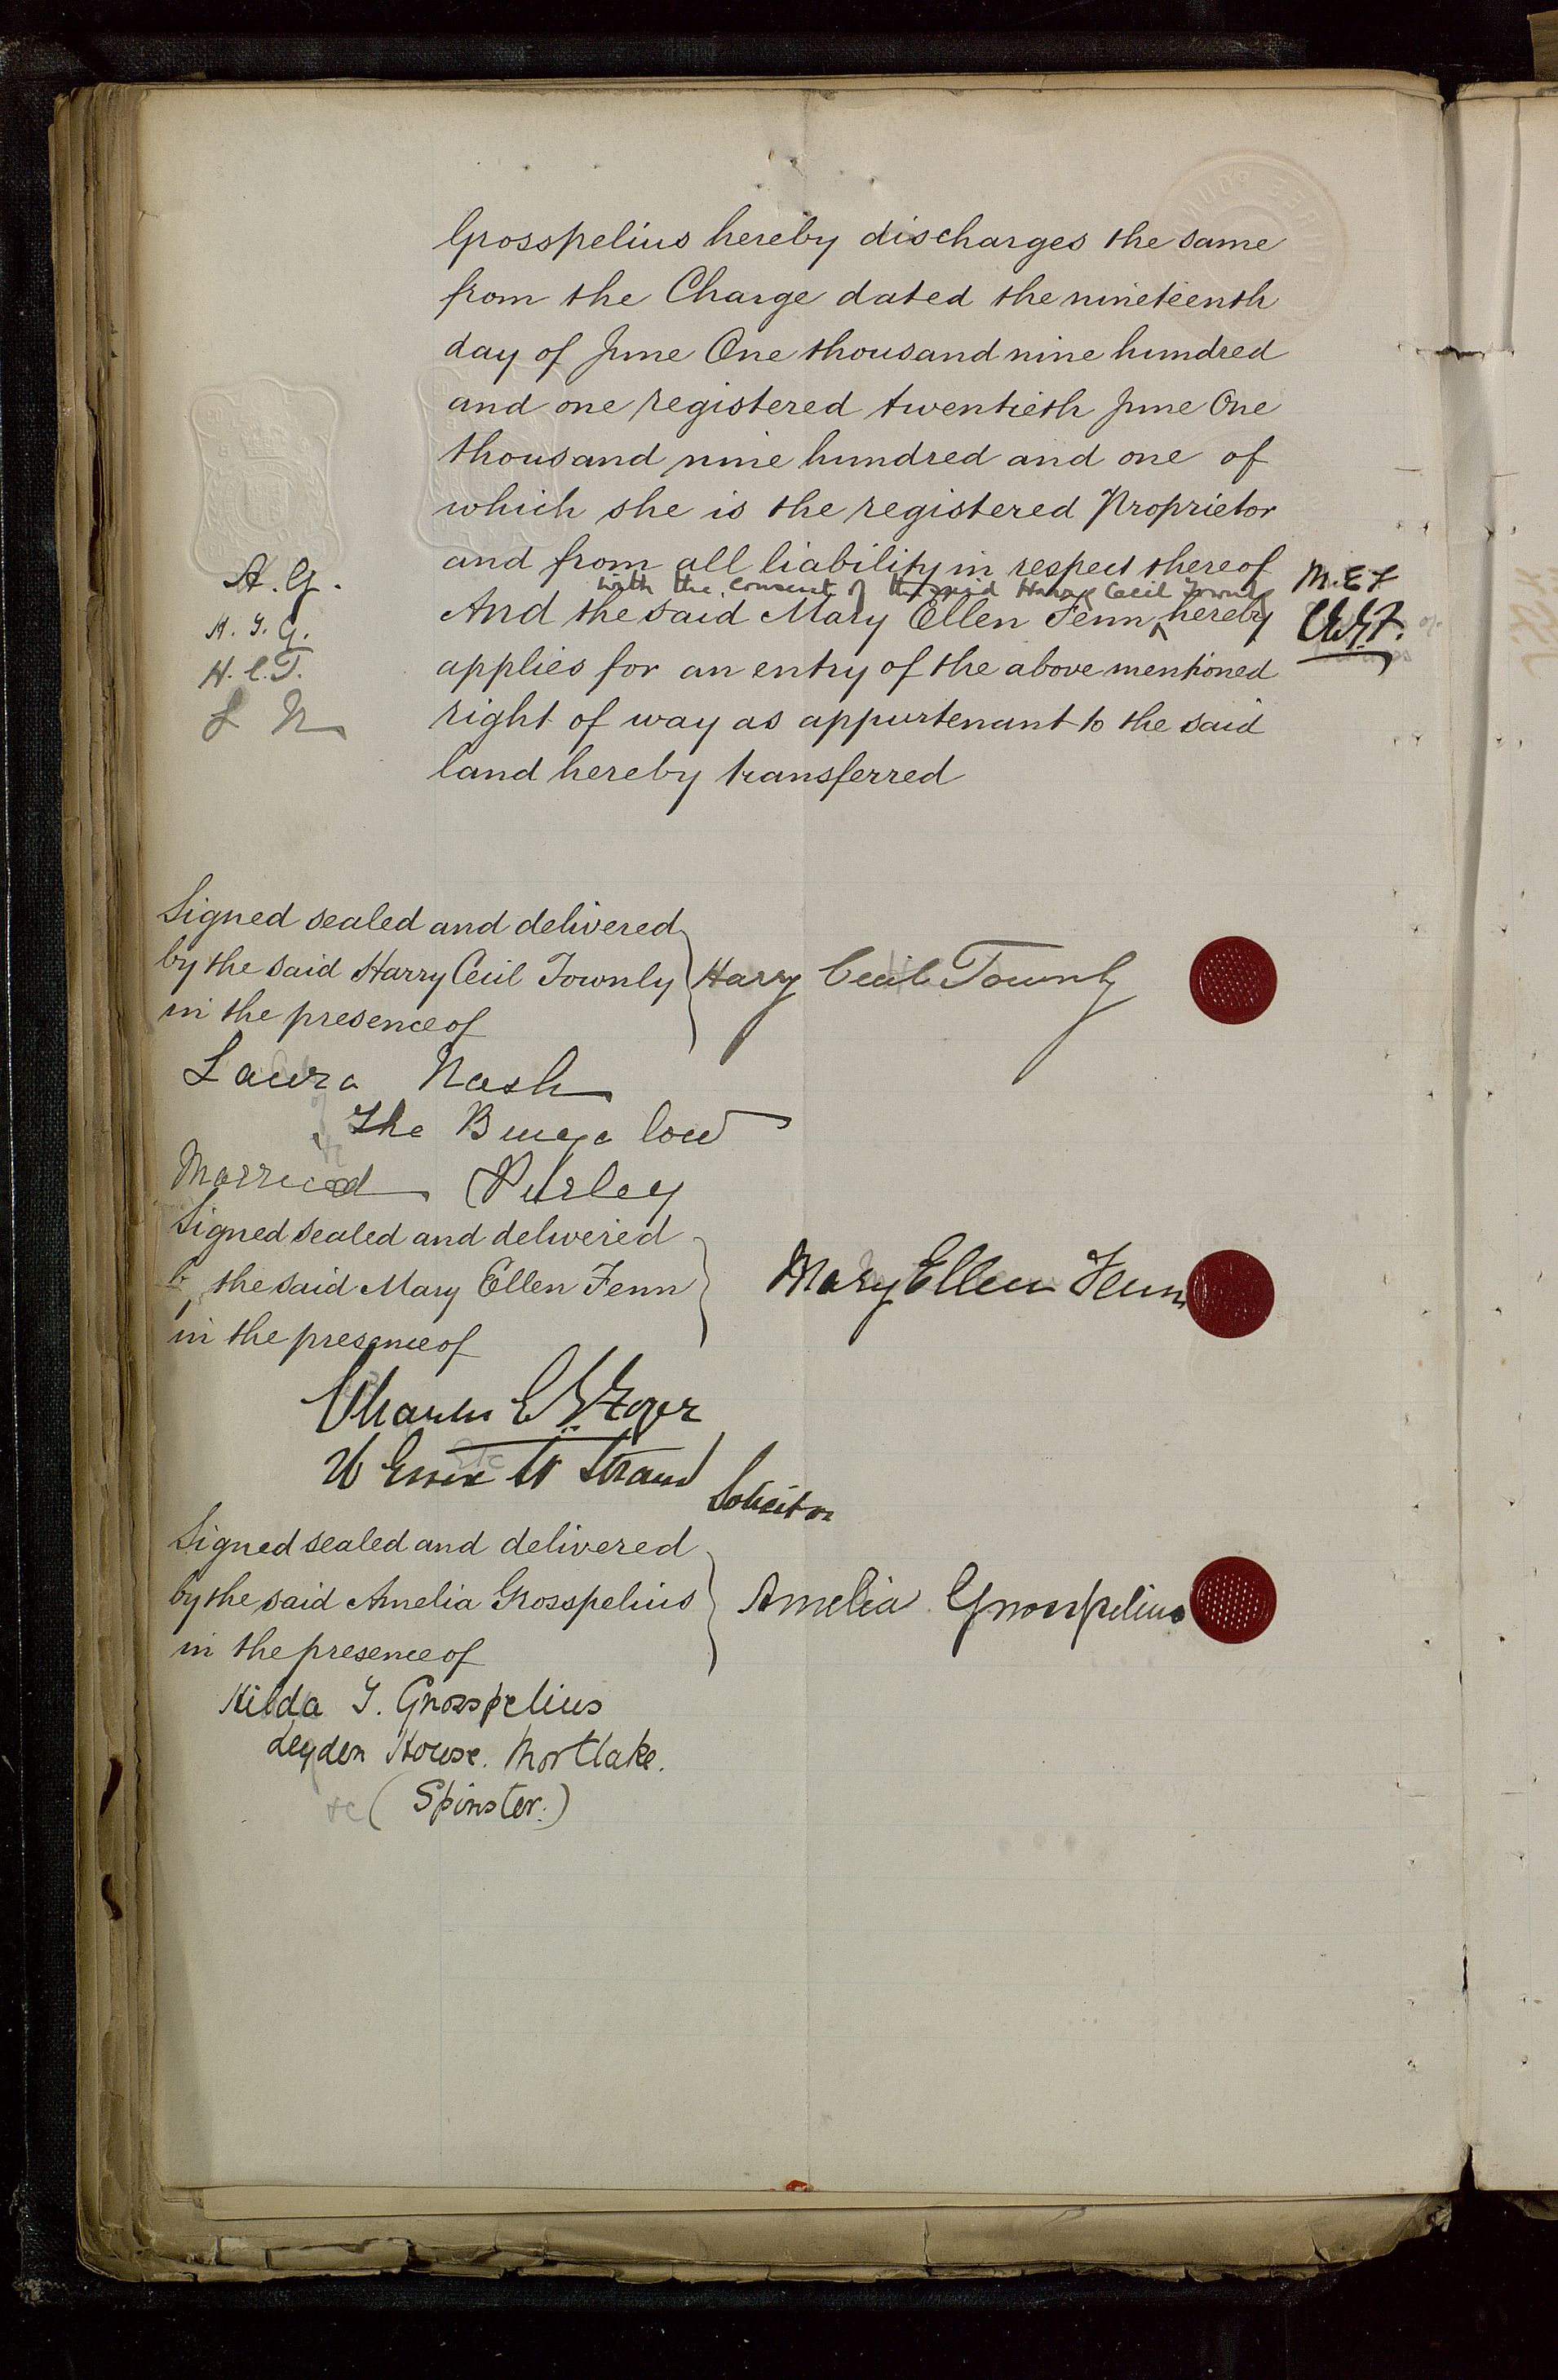 Grosspelius hereby discharges the same
from the Charge dated the nineteenth
day of June One thousand nine hundred
and one registered twentieth June One
thousand nine hundred and one of
which she is the registered Proprietor
and from all liability in respect thereof
with the consent of the said Harry Cecil Townly
And the said Mary Ellen Fenn ^ hereby
applies for an entry of the above mentioned
right of way as appurtenant to the said
land hereby transferred
A. G.
H. Y. G.
H. C. T.
L N
M. E F
Signed sealed and delivered
by the said Harry Cecil Townly
in the presence of
Harry Cecil Townly
Laura Nash
The Bungalow
Married Purley
Signed sealed and delivered
by the said Mary Ellen Fenn
in the presence of
Mary Ellen Fenn
Charles E
Essex St Strand
Solicitor
Signed sealed and delivered
by the said Amelia Grosspelius
in the presence of
Amelia Grosspelius
Hilda Y. Grosspelius
Leyden House. Mortlake.
(Spinster.)